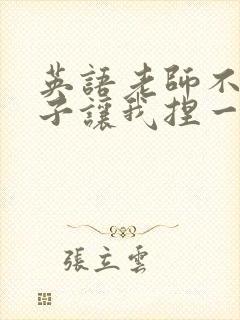 英語老師不
子讓我捏一
張立雲